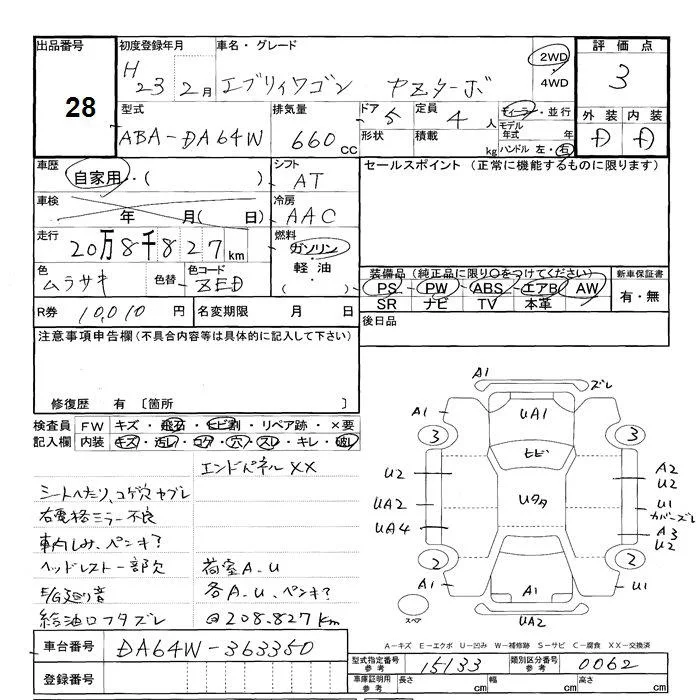 出品番号
28
初度登録年月
H 23 2月
車名・グレード
エブリィワゴン PZターボ
2WD
4WD
評価点
3
型式
ABA-DA64W
排気量
660 CC
ドア 5
形状
定員 4 人
積載 kg
ディーラー・並行
モデル年式 年
ハンドル 左・右
外装 内装
D D
車歴
自家用・( )
シフト
AT
セールスポイント (正常に機能するものに限ります)
車検
年 月( 日)
冷房
AAC
走行
20万8千827km
燃料
ガソリン・
軽油・
( )
色
ムラサキ
色替
色コード
ZED
装備品(純正品に限り○をつけてください)
PS・PW・ABS・エアB・AW
SR ナビ TV 本革・
新車保証書
有・無
R券 10,010 円
名変期限 月 日
後日品
注意事項申告欄(不具合内容等は具体的に記入して下さい)
修復歴 有 〔箇所 〕
検査員 FW キズ・飛石・ヒビ割・リペア跡・×要
記入欄 内装 キズ・汚レ・コゲ・穴・スレ・キレ・破レ
エンドパネルXX
シートへたり、コゲ穴ヤブレ
右電格ミラー不良
車内しみ、ペンキ?
ヘッドレスト一部欠
荷室A.U
E/G廻り音
各A.U、ペンキ?
給油口フタズレ
@208.827km
A1
ズレ
A1
UA1
A1
3
3
ヒビ
U2
UA2
UA4
Uタタ
A2
U2
U1
カバーズレ
A3
U2
2
2
A1
A1
U1
スペア
UA2
A-キズ E-エクボ U-凹み W-補修跡 S-サビ C-腐食 XX-交換済
車台番号
DA64W-363350
登録番号
型式指定番号
参考
15133
類別区分番号
参考
0062
車庫証明用
参考
長さ cm
幅 cm
高さ cm